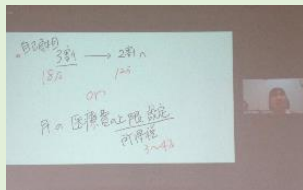 自己負担
3割 → 2割へ
18万 12万
or
月の医療費の上限設定
所得税
3〜4万